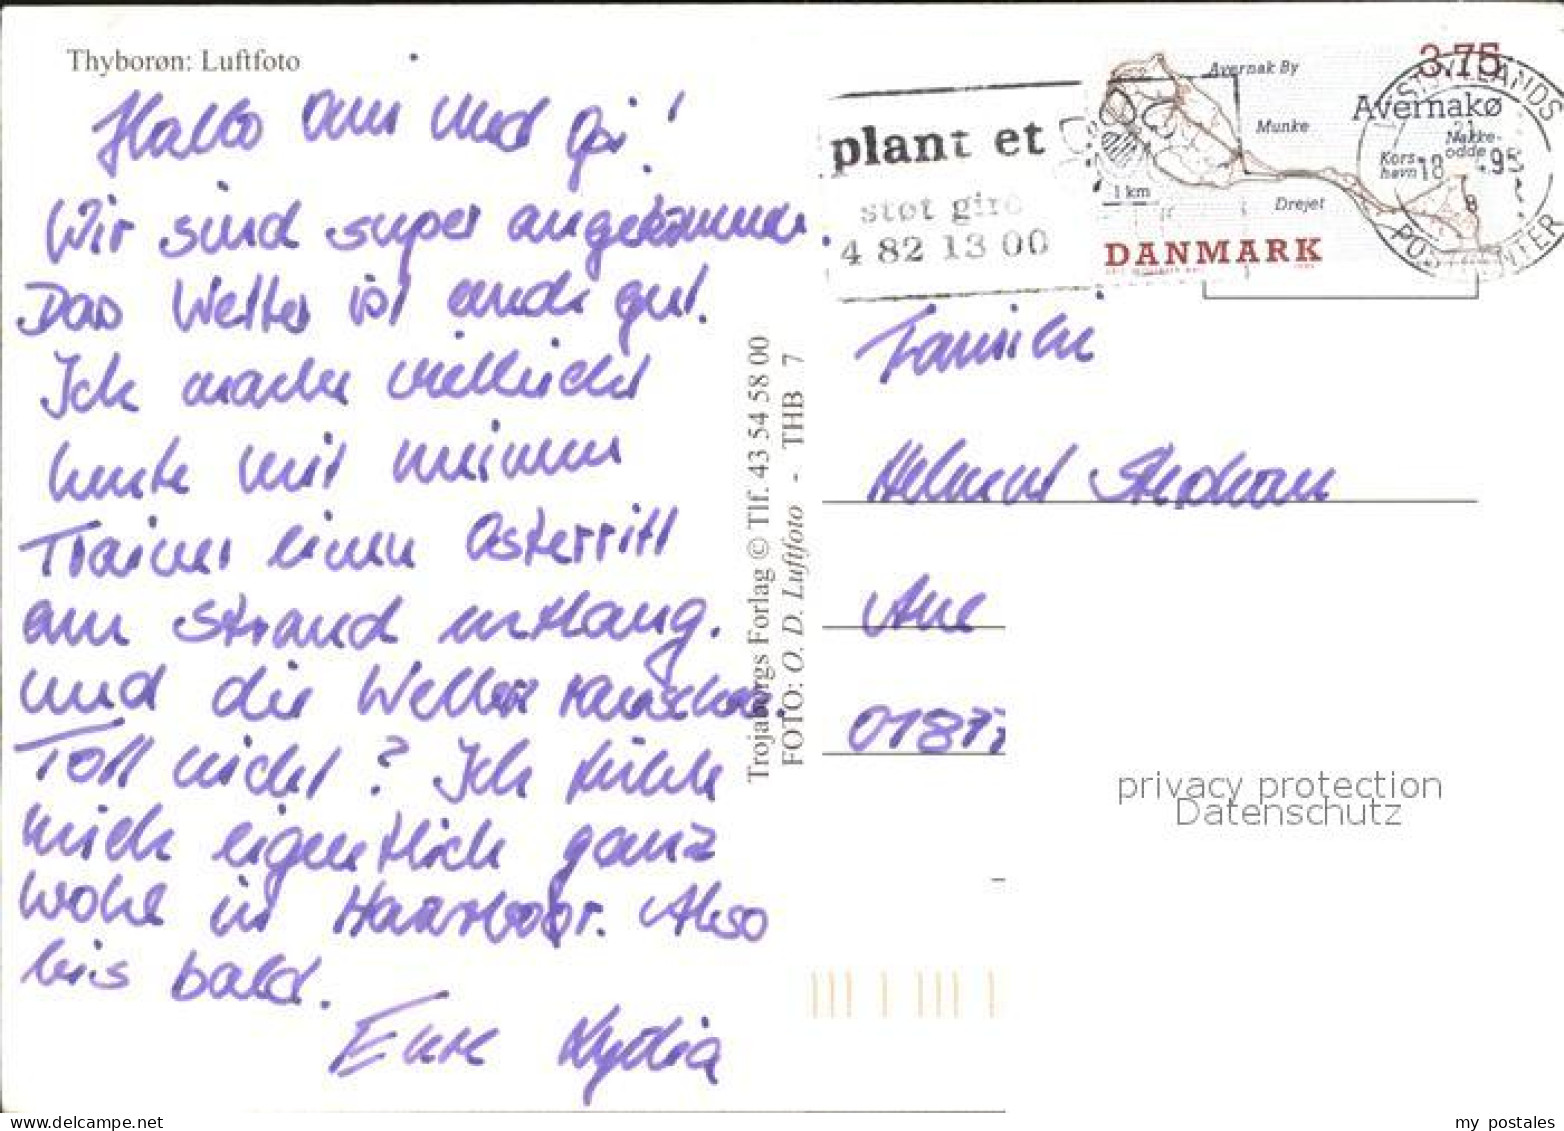 Thyborøn: Luftfoto
Hallo
Wir sind super angekommen.
Das Wetter ist auch gut.
Ich mache vielleicht
heute mit meinem
Trainer einen Osterritt
am Strand entlang.
und die Wellen rauschen.
Toll nicht? Ich fühle
mich eigentlich ganz
wohl in Also
bis bald.
Eure Lydia
Trojaborgs Forlag © Tlf. 43 54 58 00
FOTO: O. D. Luftfoto - THB 7
plant et
støt giro
4 82 13 00
3.75
Avernakø
Avernak By
Munke
Nakke-
odde
Kors
havn
Drejet
1 km
DANMARK
POSTCENTER
21
18 95
Familie
Helmut Stephan
01877
privacy protection
Datenschutz
my postales